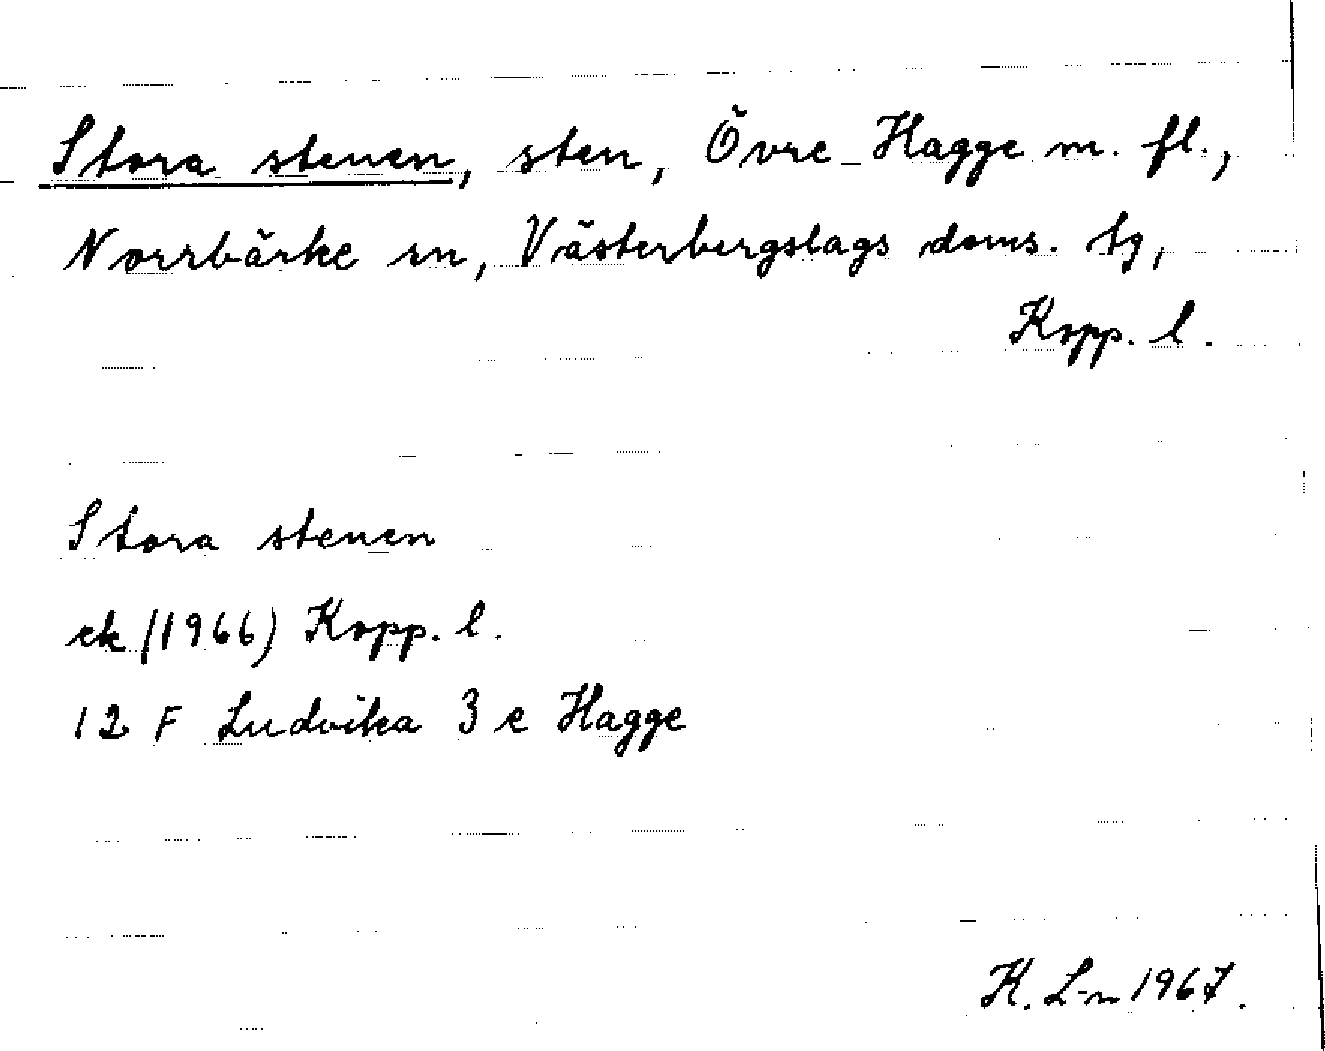 Stora stenen, sten, Övre Hagge m. fl.,
Norrbärke sn, Västerbergslags doms. tg,
Kopp. l.
Stora stenen
ek (1966) Kopp. l.
12 F Ludvika 3 e Hagge
K. L-n 1967.